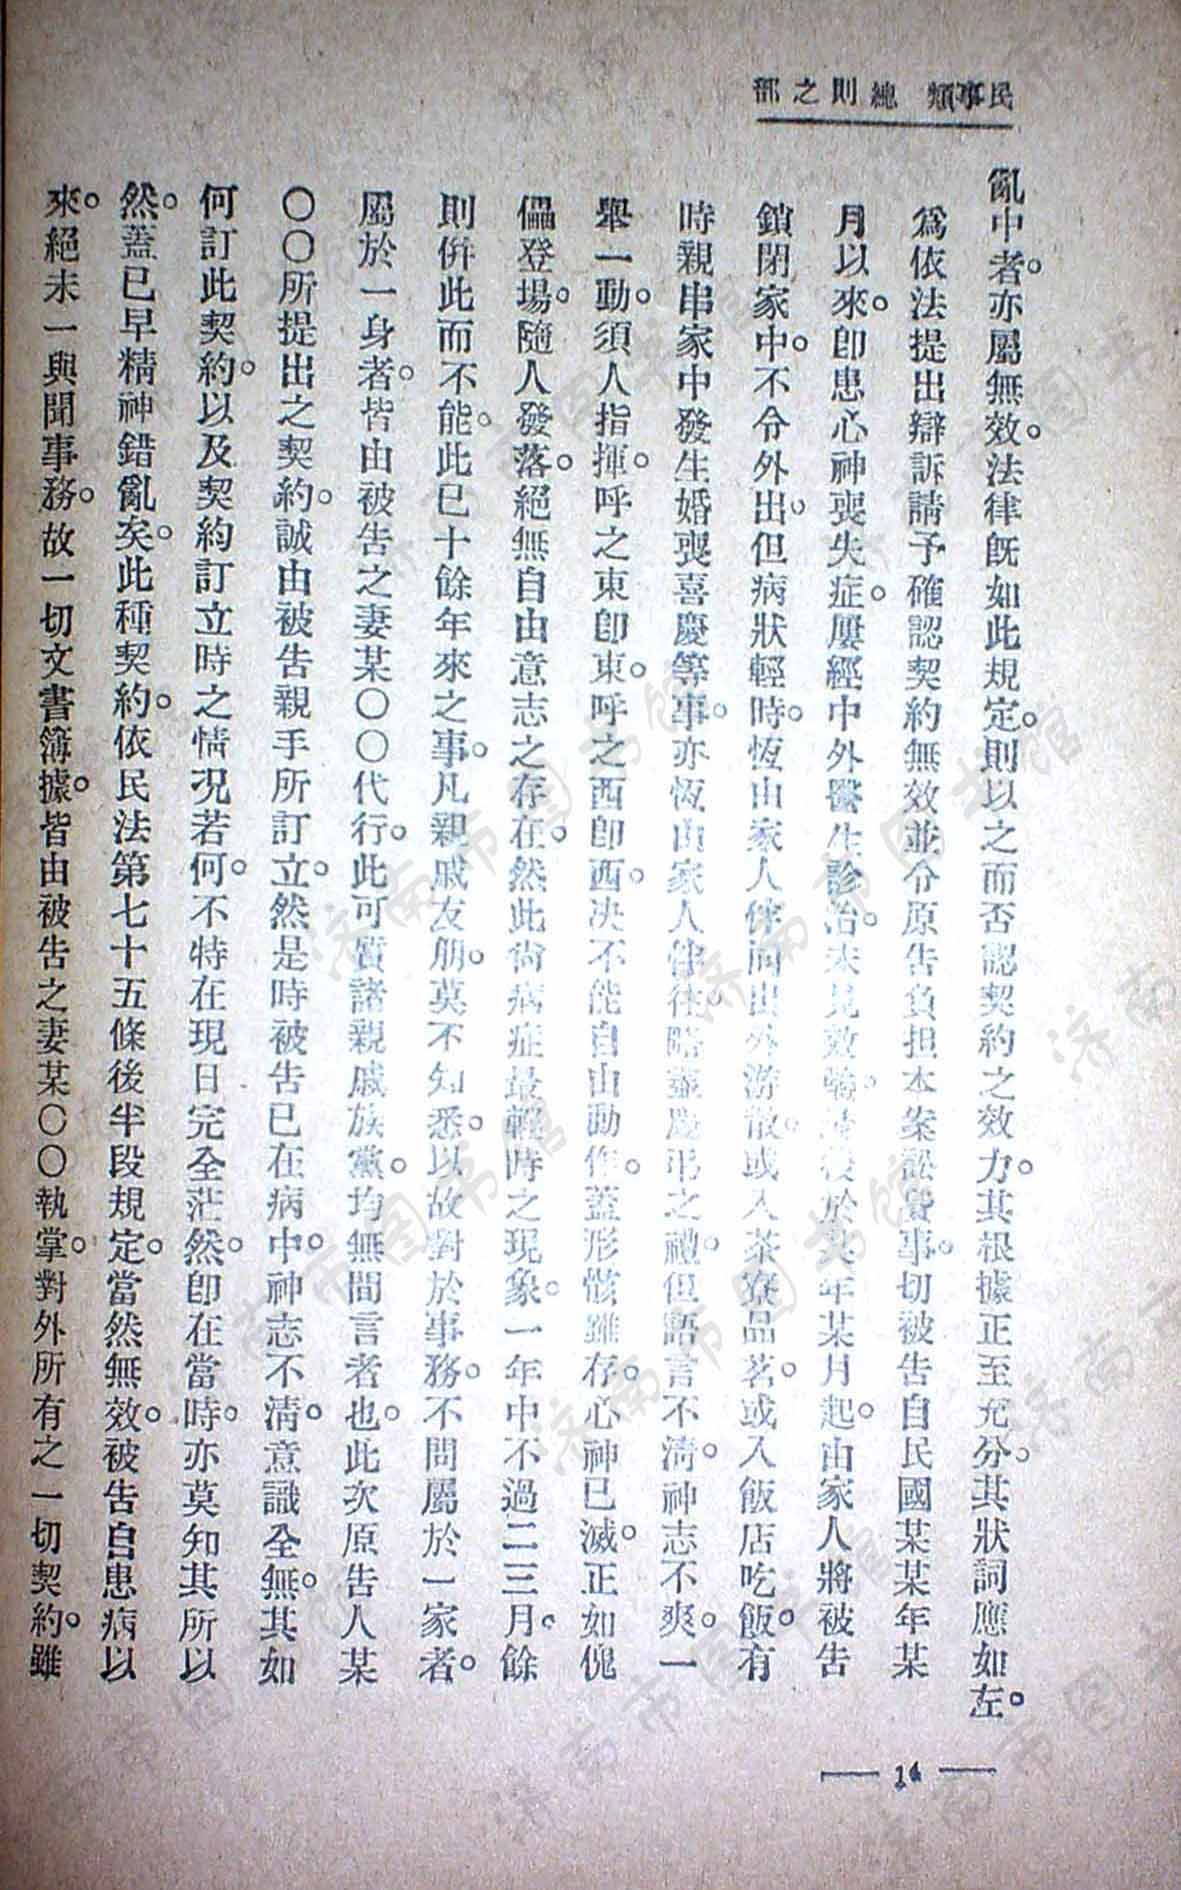 民事類 總則之部
亂中者。亦屬無效。法律旣如此規定。則以之而否認契約之效力。其根據正至充分。其狀詞應如左。
爲依法提出辯訴請予確認契約無效並令原告負担本案訟費事。切被告自民國某某年某
月以來。卽患心神喪失症。屢經中外醫生診治。未見效。後於某年某月起。由家人將被告
鎖閉家中。不令外出。但病狀輕時。恆由家人伴同出外游散。或入茶寮品茗。或入飯店吃飯。有
時親串家中發生婚喪喜慶等事。亦恆由家人伴往。略盡慶弔之禮。但語言不淸。神志不爽。一
舉一動。須人指揮。呼之東卽東。呼之西卽西。决不能自由動作。蓋形骸雖存。心神已滅。正如傀
儡登場。隨人發落。絕無自由意志之存在。然此尙病症最輕時之現象。一年中不過二三月。餘
則併此而不能。此已十餘年來之事。凡親戚友朋。莫不知悉。以故對於事務。不問屬於一家者。
屬於一身者。皆由被告之妻某〇〇代行。此可質諸親戚族黨。均無間言者也。此次原告人某
〇〇所提出之契約。誠由被告親手所訂立。然是時被告已在病中。神志不淸。意識全無。其如
何訂此契約。以及契約訂立時之情况若何。不特在現日完全茫然。卽在當時。亦莫知其所以
然。蓋已早精神錯亂矣。此種契約。依民法第七十五條後半段規定。當然無效。被告自患病以
來。絕未一與聞事務。故一切文書簿據。皆由被告之妻某〇〇執掌。對外所有之一切契約。雖
— 14 —
济南市图书馆
济南市图书馆
济南市图书馆
济南市图书馆